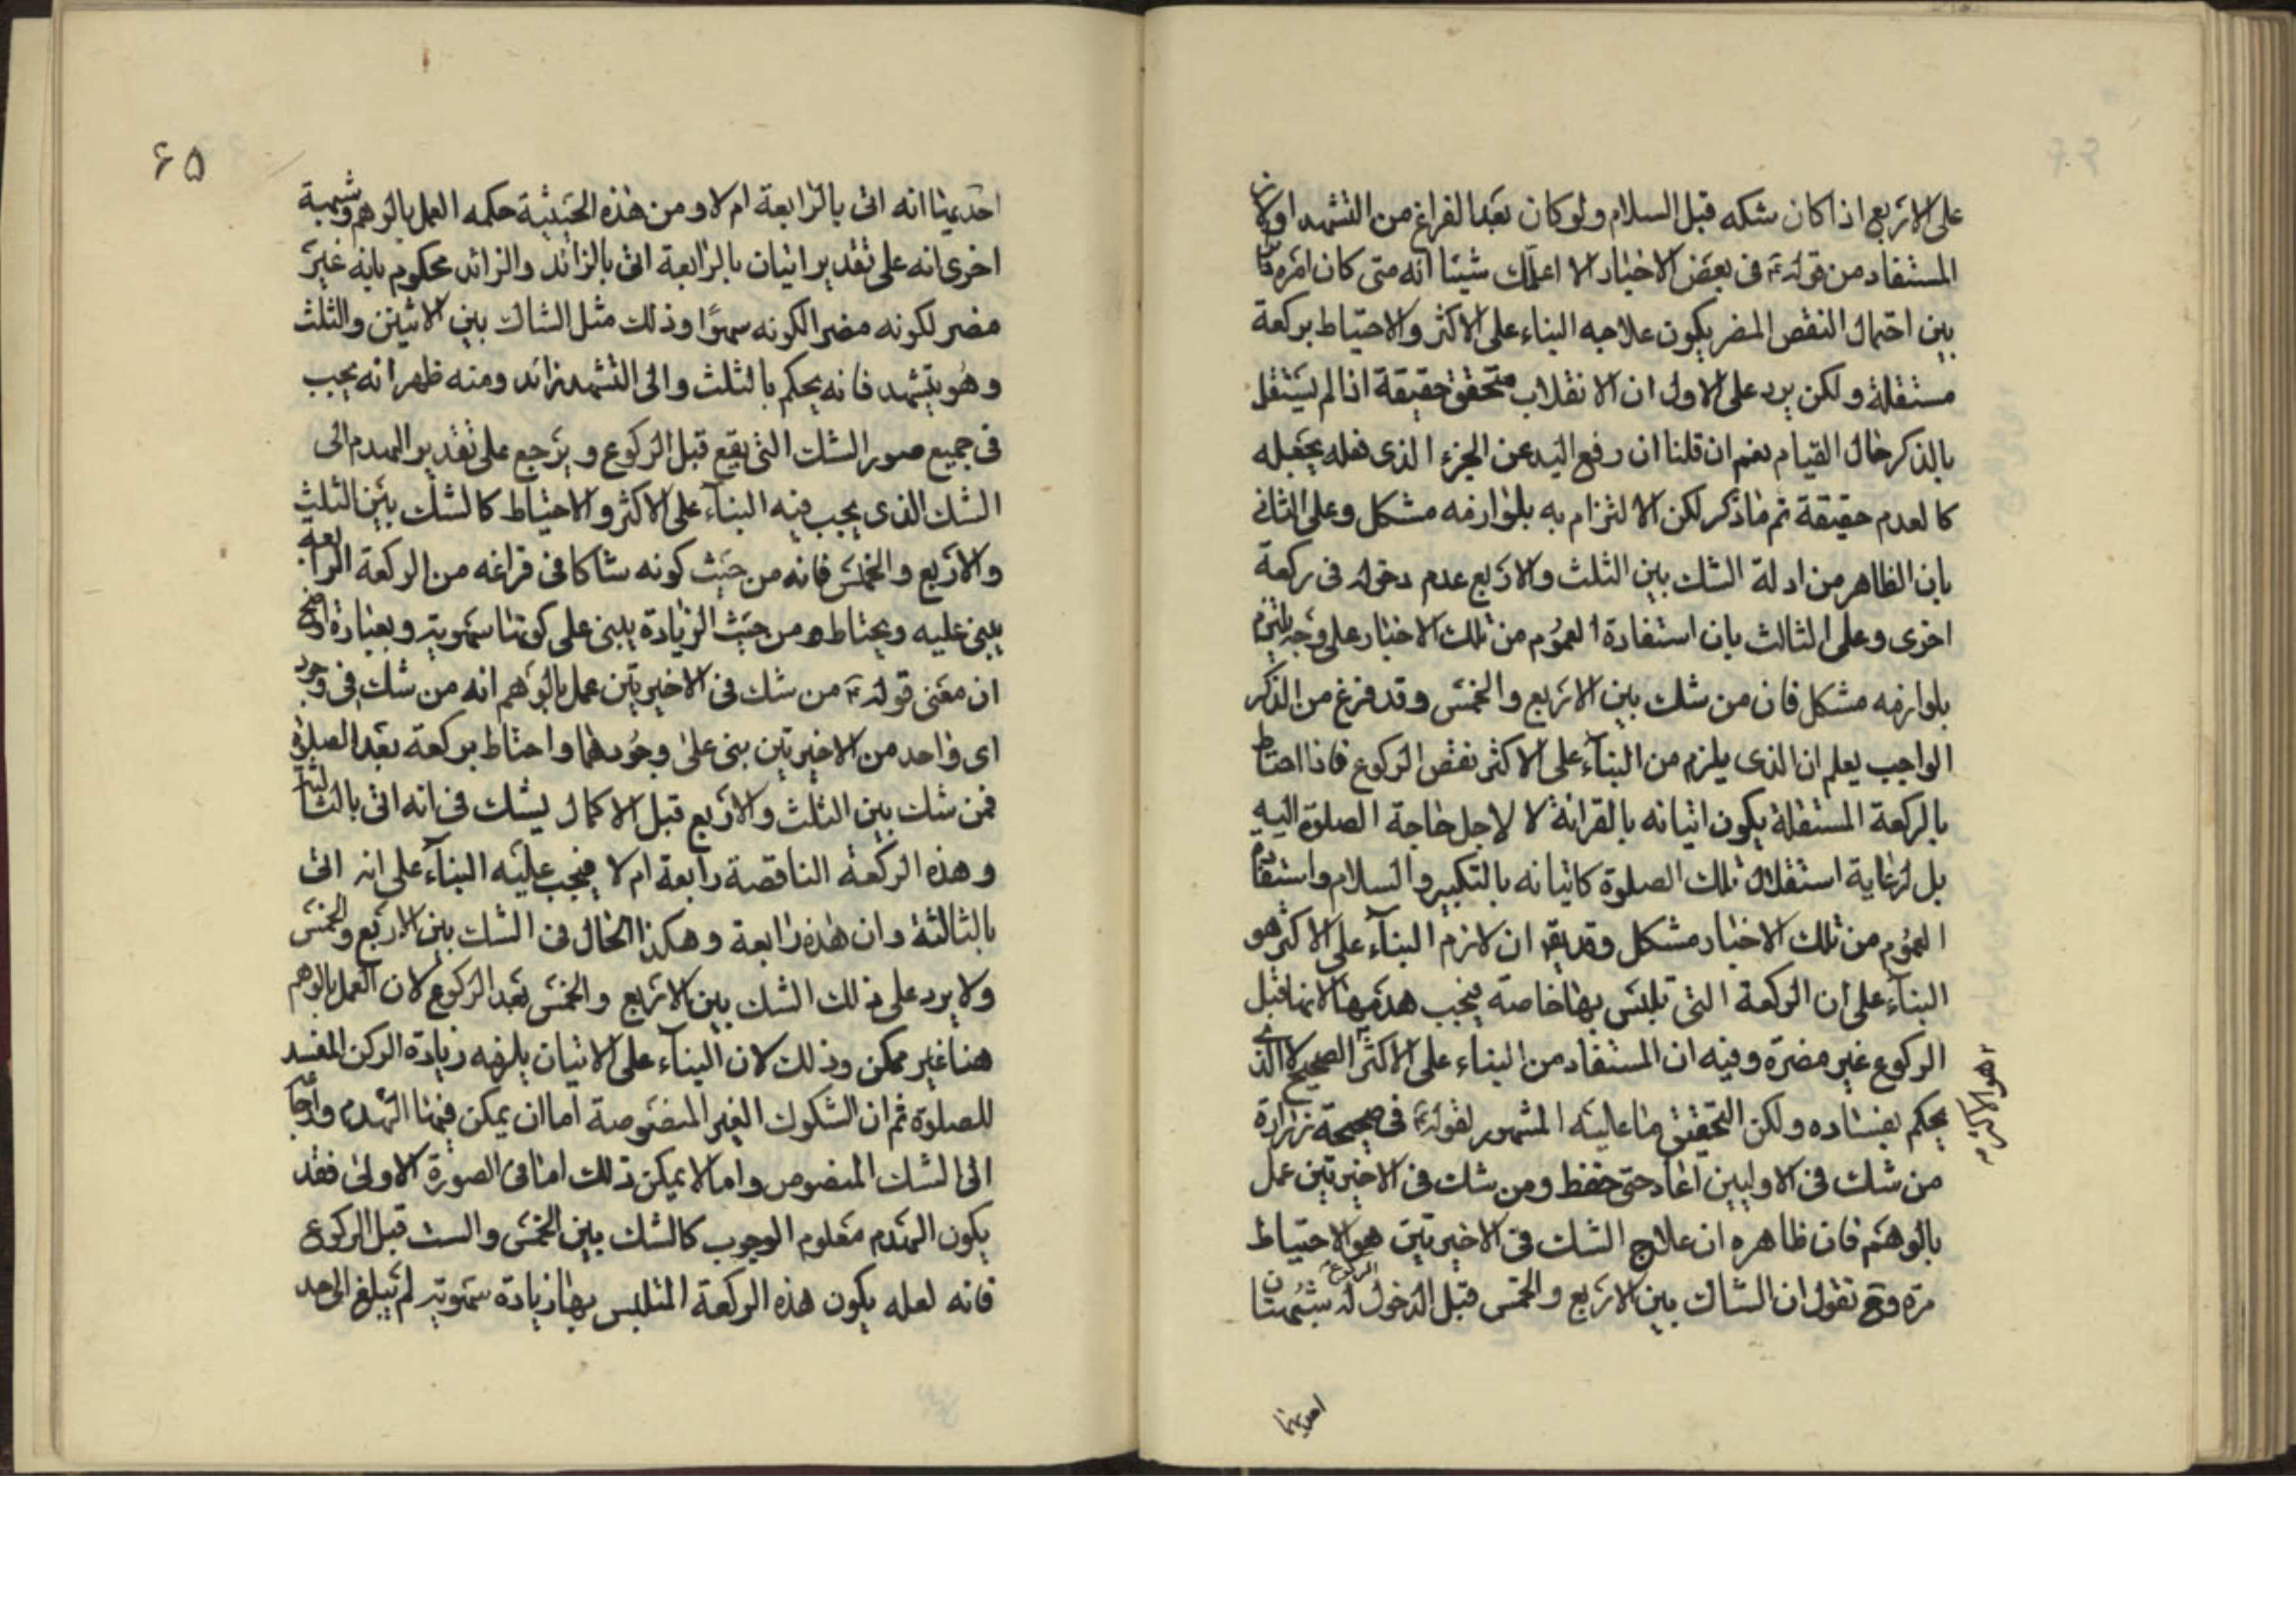 على الاربع اذا كان شكه قبل السلام ولو كان بعد الفراغ من التشهد او لان
المستفاد من قوله ع في بعض الاخبار الا اعلمك شيئا انه متى كان امره
بين احتمال النقص المضر يكون علاجه البناء على الاكثر والاحتياط بركعة
مستقلة ولكن يرد على الاول ان الانقلاب متحقق حقيقة اذا لم يشتغل
بالذكر حال القيام نعم ان قلنا ان رفع اليد عن الجزء الذى فعله يجعله
كالعدم حقيقة تم ما ذكر لكن الالتزام به بلوازمه مشكل وعلى الثاني
بان الظاهر من ادلة الشك بين الثلث والاربع عدم دخوله في ركعة
اخرى وعلى الثالث بان استفادة العموم من تلك الاخبار على وجه يلتزم
بلوازمه مشكل فان من شك بين الاربع والخمس وقد فرغ من الذكر
الواجب يعلم ان الذى يلزم من البناء على الاكثر نقص الركوع فاذا احتاط
بالركعة المستقلة يكون اتيانه بالقرائة لا لاجل حاجة الصلوة اليه
بل لرعاية استقلال تلك الصلوة كاتيانه بالتكبير والسلام واستفادة
العموم من تلك الاخبار مشكل وقد يقر ان لازم البناء على الاكثر هو
البناء على ان الركعة التى تلبس بها خامسة فيجب هدمها لانها قبل
الركوع غير مضرة وفيه ان المستفاد من البناء على الاكثر الصحيح لا الذى
يحكم بفساده ولكن التحقيق ما عليه المشهور لقوله ع في صحيحة زرارة
من شك في الاوليين اعاد حتى حفظ ومن شك في الاخيرتين عمل
بالوهم فان ظاهره ان علاج الشك في الاخيرتين هو الاحتياط
مرة وح نقول ان الشاك بين الاربع والخمس قبل الدخول له شبهتان
الركوع
هو الاكثر
احديهما
۶۵
احديهما انه اتى بالرابعة ام لا ومن هذه الحيثية حكمه العمل بالوهم وشبهة
اخرى انه على تقدير اتيان بالرابعة اتى بالزائد والزائد محكوم بانه غير
مضر لكونه مضرا لكونه سهوا وذلك مثل الشاك بين الاثنين والثلث
وهو يتشهد فانه يحكم بالثلث والى التشهد زائد ومنه ظهر انه يجب
في جميع صور الشك التى يقع قبل الركوع ويرجع على تقدير الهدم الى
الشك الذى يجب فيه البناء على الاكثر والاحتياط كالشك بين الثلث
والاربع والخمس فانه من حيث كونه شاكا في فراغه من الركعة الرابعة
يبنى عليه ويحتاط ومن حيث الزيادة يبنى على كونها سهوية وبعبارة اوضح
ان معنى قوله ع من شك في الاخيرتين عمل بالوهم انه من شك في وجود
اى واحد من الاخيرتين بنى على وجودهما واحتاط بركعة بعد الصلوة
فمن شك بين الثلث والاربع قبل الاكمال يشك في انه اتى بالثالثة
وهذه الركعة الناقصة رابعة ام لا فيجب عليه البناء على انه اتى
بالثالثة وان هذه رابعة وهكذا الحال في الشك بين الاربع والخمس
ولا يرد على ذلك الشك بين الاربع والخمس بعد الركوع لان العمل بالوهم
هنا غير ممكن وذلك لان البناء على الاتيان يلزمه زيادة الركن المفسد
للصلوة ثم ان الشكوك الغير المنصوصة اما ان يمكن فيها الهدم وارجا
الى الشك المنصوص واما لا يمكن ذلك اما في الصورة الاولى فقد
يكون الهدم معلوم الوجوب كالشك بين الخمس والست قبل الركوع
فانه لعله يكون هذه الركعة المتلبس بها زيادة سهوية لم تبلغ الى حد